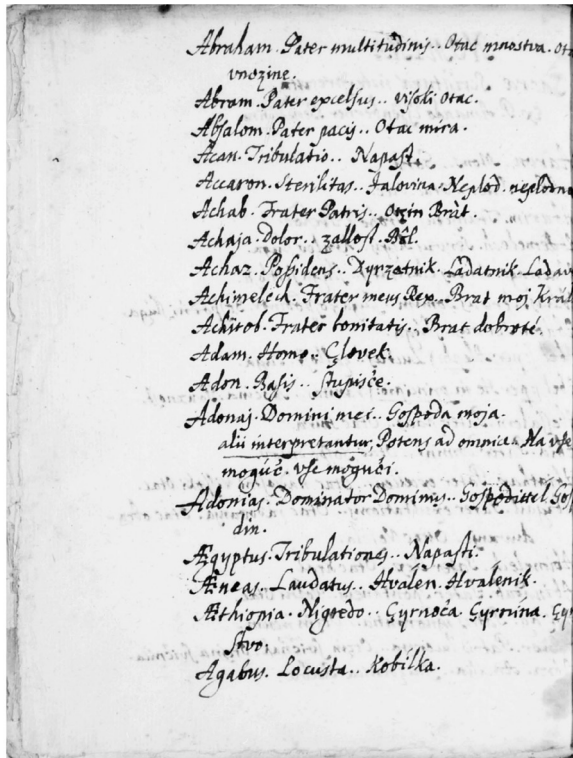 Abraham. Pater multitudinis.. Otac mnostva. Ot
vnozine.
Abram. Pater excelsus.. visoki otac.
Absalom. Pater pacis.. Otac mira.
Acan. Tribulatio.. Napast.
Accaron. Sterilitas. Jalovina. Neplod. neplodno
Achab. Frater Patris.. Otčin Brât.
Achaja. Dolor.. zallost. Bôl.
Achaz. Possidens.. Ladatnik. Ladav
Achimelech. Frater meus Rex.. Brat moj Král
Achitob. Frater bonitatis.. Brat dobroté.
Adam. Homo.. Človek.
Adon. Basis.. stupišče.
Adonaj. Domini mei.. Gospoda moja.
alii interpretantur, Potens ad omnia. Na vse
moguč. vse mogučì.
Adonias. Dominator Dominus.. Gospodittel Gos
din.
Ægyptus. Tribulationes.. Napasti.
Æneas. Laudatus.. Hvalen. Hvalenik.
Æthiopia. Nigredo.. Çyrnoca. Çyrnina. Çyr
stvo.
Agabus. Locusta.. Kobilka.